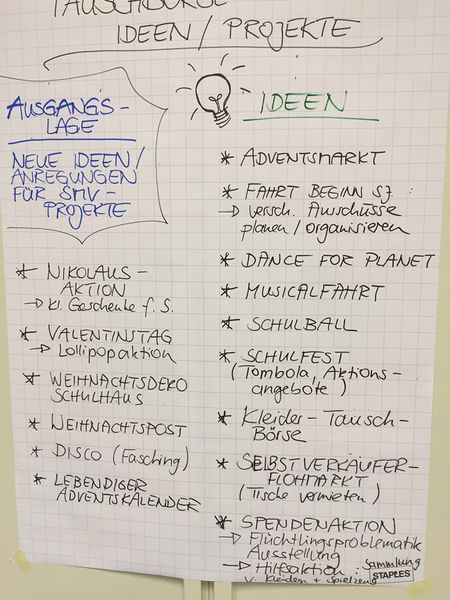 TAUSCHBÖRSE
IDEEN / PROJEKTE
AUSGANGS-
LAGE
NEUE IDEEN /
ANREGUNGEN
FÜR SMV-
PROJEKTE
* NIKOLAUS-
AKTION
→ kl. Geschenke f. S.
* VALENTINSTAG
→ Lollipopaktion
* WEIHNACHTSDEKO
SCHULHAUS
* WEIHNACHTSPOST
* DISCO (Fasching)
* LEBENDIGER
ADVENTSKALENDER
IDEEN
* ADVENTSMARKT
* FAHRT BEGINN SJ :
→ versch. Ausschüsse
planen / organisieren
* DANCE FOR PLANET
* MUSICALFAHRT
* SCHULBALL
* SCHULFEST
(Tombola, Aktions-
angebote)
* Kleider-Tausch-
Börse
* SELBSTVERKÄUFER-
FLOHMARKT
(Tische vermieten)
* SPENDENAKTION
→ Flüchtlingsproblematik
Ausstellung
→ Hilfsaktion : Sammlung
v. Kleidern + Spielzeug
STAPLES